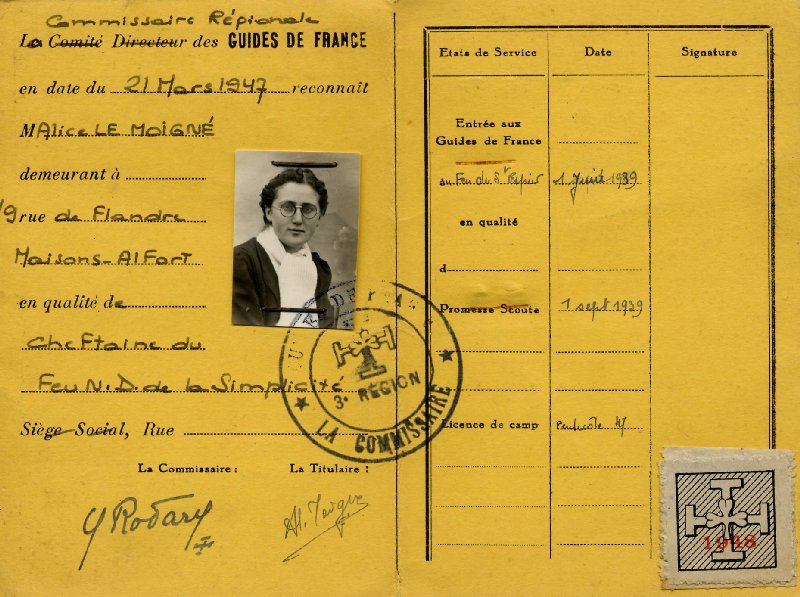 Commissaire Régionale
Le Comité Directeur des GUIDES DE FRANCE
en date du 21 Mars 1947 reconnaît
M Alice LE MOIGNÉ
demeurant à
19 rue de Flandre
Maisons-Alfort
en qualité de
Cheftaine du
Feu N.D. de la Simplicité
Siège Social, Rue
La Commissaire :
La Titulaire :
Y Rodary
GUIDES DE FRANCE
3e RÉGION
★ LA COMMISSAIRE ★
Etats de Service
Date
Signature
Entrée aux
Guides de France
au Feu du St 1 Juil 1939
en qualité
d
Promesse Scoute 1 sept 1939
Licence de camp Pentecôte 47
1948